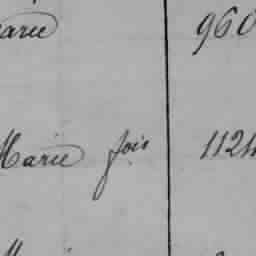 arie 960
Marie fois 1124